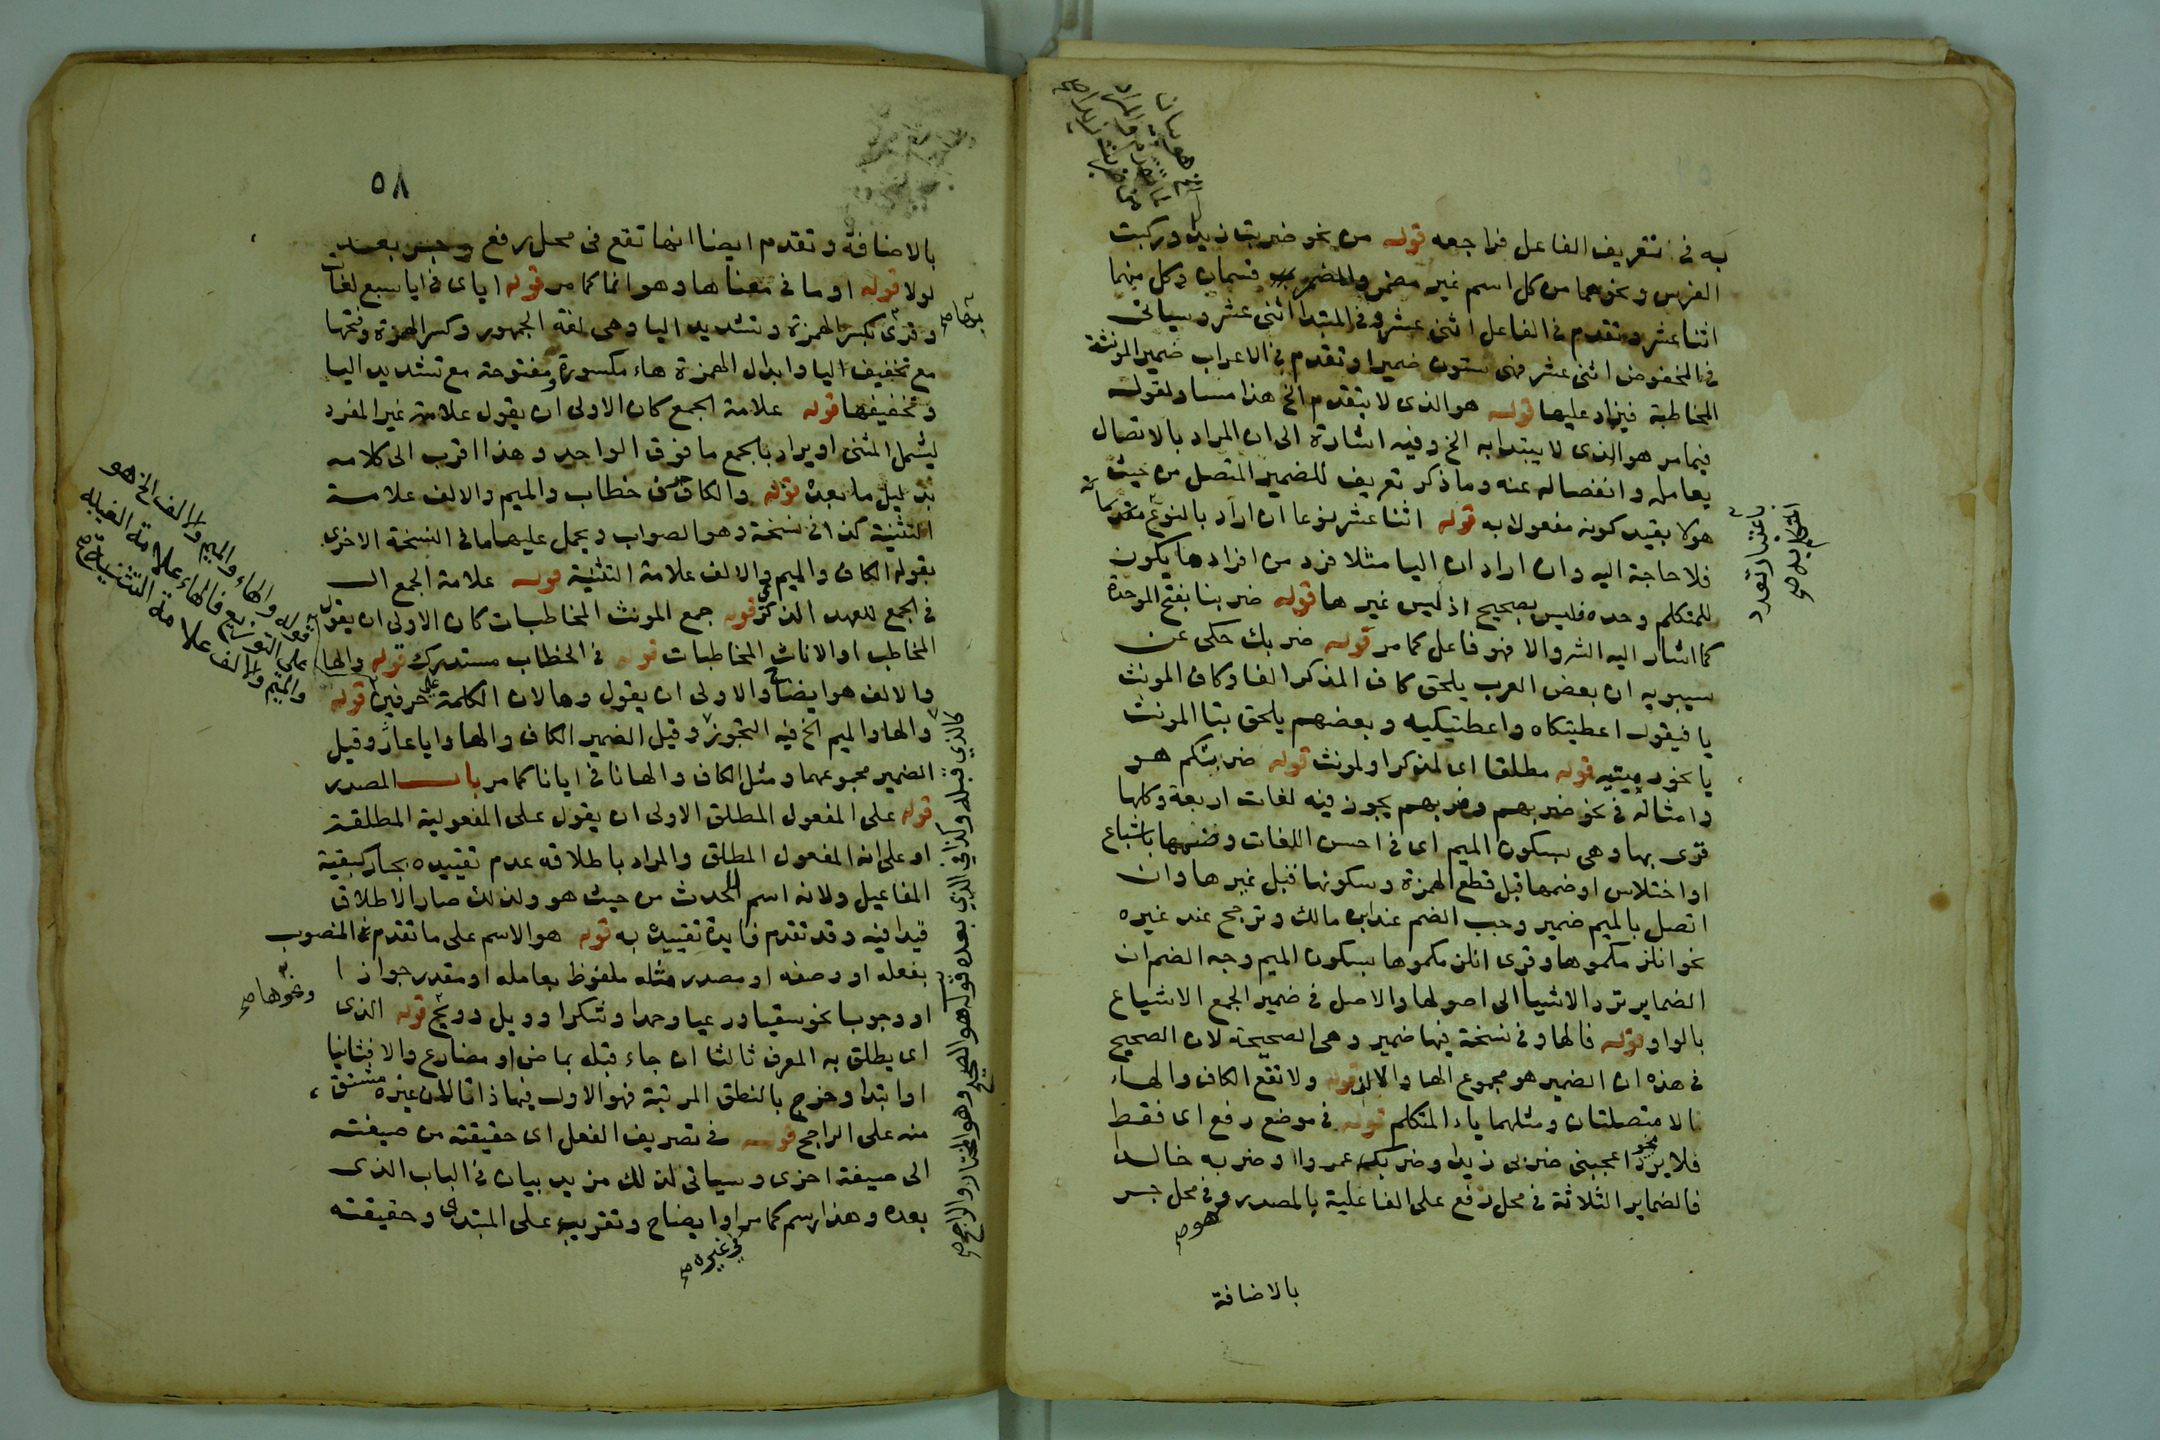 به في تعريف الفاعل فراجعه قوله من نحو ضربت زيدا وركبت
الفرس ونحوهما من كل اسم غير مضمر والمضمر قسمان وكل منهما
اثنا عشر وتقدم في الفاعل اثني عشر وفي المبتدا اثني عشر وسياتي
في المخفوض اثني عشر فهي ستون ضميرا وتقدم في الاعراب ضمير المونثة
المخاطبة فيزاد عليها قوله هو الذي لا يتقدم الخ هذا مساو لقوله
فيما مر هو الذي لا يبتدا به الخ وفيه اشارة الى ان المراد بالاتصال
بعامله وانفصاله عنه وما ذكر تعريف للضمير المتصل من حيث
هو لا بقيد كونه مفعولا به قوله اثنا عشر نوعا ان اراد بالنوع
فلا حاجة اليه وان اراد ان اليا مثلا فرد من افرادها يكون
للمتكلم وحده فليس بصحيح اذ ليس غيرها قوله ضربنا بفتح الموحدة
كما اشار اليه الشر والا فهو فاعل كما مر قوله ضربك حكى عن
سيبويه ان بعض العرب يلحق كاف المذكر الفا وكاف المونث
يا فيقول اعطيتكاه واعطيتكيه وبعضهم يلحق بتا المونث
يا نحو رميتيه قوله مطلقا اي لمذكر او لمونث قوله ضربتكم هو
وامثاله في نحو ضربهم ومر بهم يجوز فيه لغات اربعة وكلها
قرى بها وهي سكون الميم اي في احسن اللغات وضمها باشباع
او اختلاس او ضمها قبل قطع الهمزة وسكونها قبل غيرها وان
اتصل بالميم ضمير وجب الضم عند ابن مالك وترجح عند غيره
نحو انلزمكموها وقرى انلزمكموها بسكون الميم وجه الضم ان
الضماير ترد الاشيا الى اصولها والاصل في ضمير الجمع الاشباع
بالواو قوله فالها وفي نسخة فيها ضمير وهي الصحيحة لان الصحيح
في هذه ان الضمير هو مجموع الها والالف قوله ولا تقع الكاف والهاء
الا متصلتان ومثلهما ياء المتكلم قوله في موضع رفع اي فقط
فلا يرد نحو اعجبني ضربي زيدا وضربك عمروا وضربه خالدا
فالضماير الثلاثة في محل رفع على الفاعلية بالمصدر وفي محل جر
هو صح
بالاضافة
باعتبار تعدد
٥٨
بالاضافة وتقدم ايضا انها تقع في محل رفع وجر بعد
لولا قوله او ما في معناها وهو انما كما مر قوله اياي في ايا سبع لغات
وقرئ بكسر الهمزة وتشديد اليا وهي لغة الجمهور وكسر الهمزة وفتحها
مع تخفيف اليا وابدال الهمزة هاء مكسورة ومفتوحة مع تشديد اليا
وتخفيفها قوله علامة الجمع كان الاولى ان يقول علامة غير المفرد
ليشمل المثنى او يراد بالجمع ما فوق الواحد وهذا اقرب الى كلامه
بدليل ما بعده قوله والكاف حرف خطاب والميم والالف علامة
التثنية كذا في نسخة وهو الصواب ويحمل عليها ما في النسخة الاخرى
بقوله الكاف والميم والالف علامة التثنية قوله علامة الجمع ال
في الجمع للعهد الذكري قوله جمع المونث المخاطبات كان الاولى ان يقول
المخاطب او الاناث المخاطبات قوله في الخطاب مستدرك قوله والها
والالف هو ايضا والاولى ان يقول وها لان الكلمة على حرفين قوله
والها والميم الخ فيه التجوز وقيل الضمير الكاف والها وايا عماد وقيل
الضمير مجموعهما ومثل الكاف والها نا في ايانا كما مر باب المصدر
قوله على المفعول المطلق الاولى ان يقول على المفعولية المطلقة
او على انه المفعول المطلق والمراد باطلاقه عدم تقييده بجار كبقية
المفاعيل ولانه اسم الحدث من حيث هو ولذلك صار الاطلاق
قيدا فيه وقد تقدم فايدة تقييده به قوله هو الاسم على ما تقدم المنصوب
بفعله او وصفه او مصدر مثله ملفوظ بعامله او مقدر جوازا
او وجوبا نحو سقيا ورعيا وحمدا وشكرا وويل وويح قوله الذي
اي يطلق به المعرف ثالثا ان جاء قبله بماض او مضارع والا فثانيا
او ابتدا وخرج بالنطق المرتبة فهو الاول فيها ذاتا لان غيره مشتق
منه على الراجح قوله في تصريف الفعل اي حقيقته من صيغته
الى صيغة اخرى وسياتي لذلك مزيد بيان في الباب الذي
بعده وهذا رسم كما مر او ايضاح وتقريب على المبتدي وحقيقته
في غيره صح
ونحوها صح
قوله والهاء والميم والالف الخ هو
على التوزيع فالهاء علامة الغيبه
والميم والالف علامة التثنية صح
كالذي قبله وكذا في الذي بعده قوله هو الصحيح وهو المختار والراجح صح